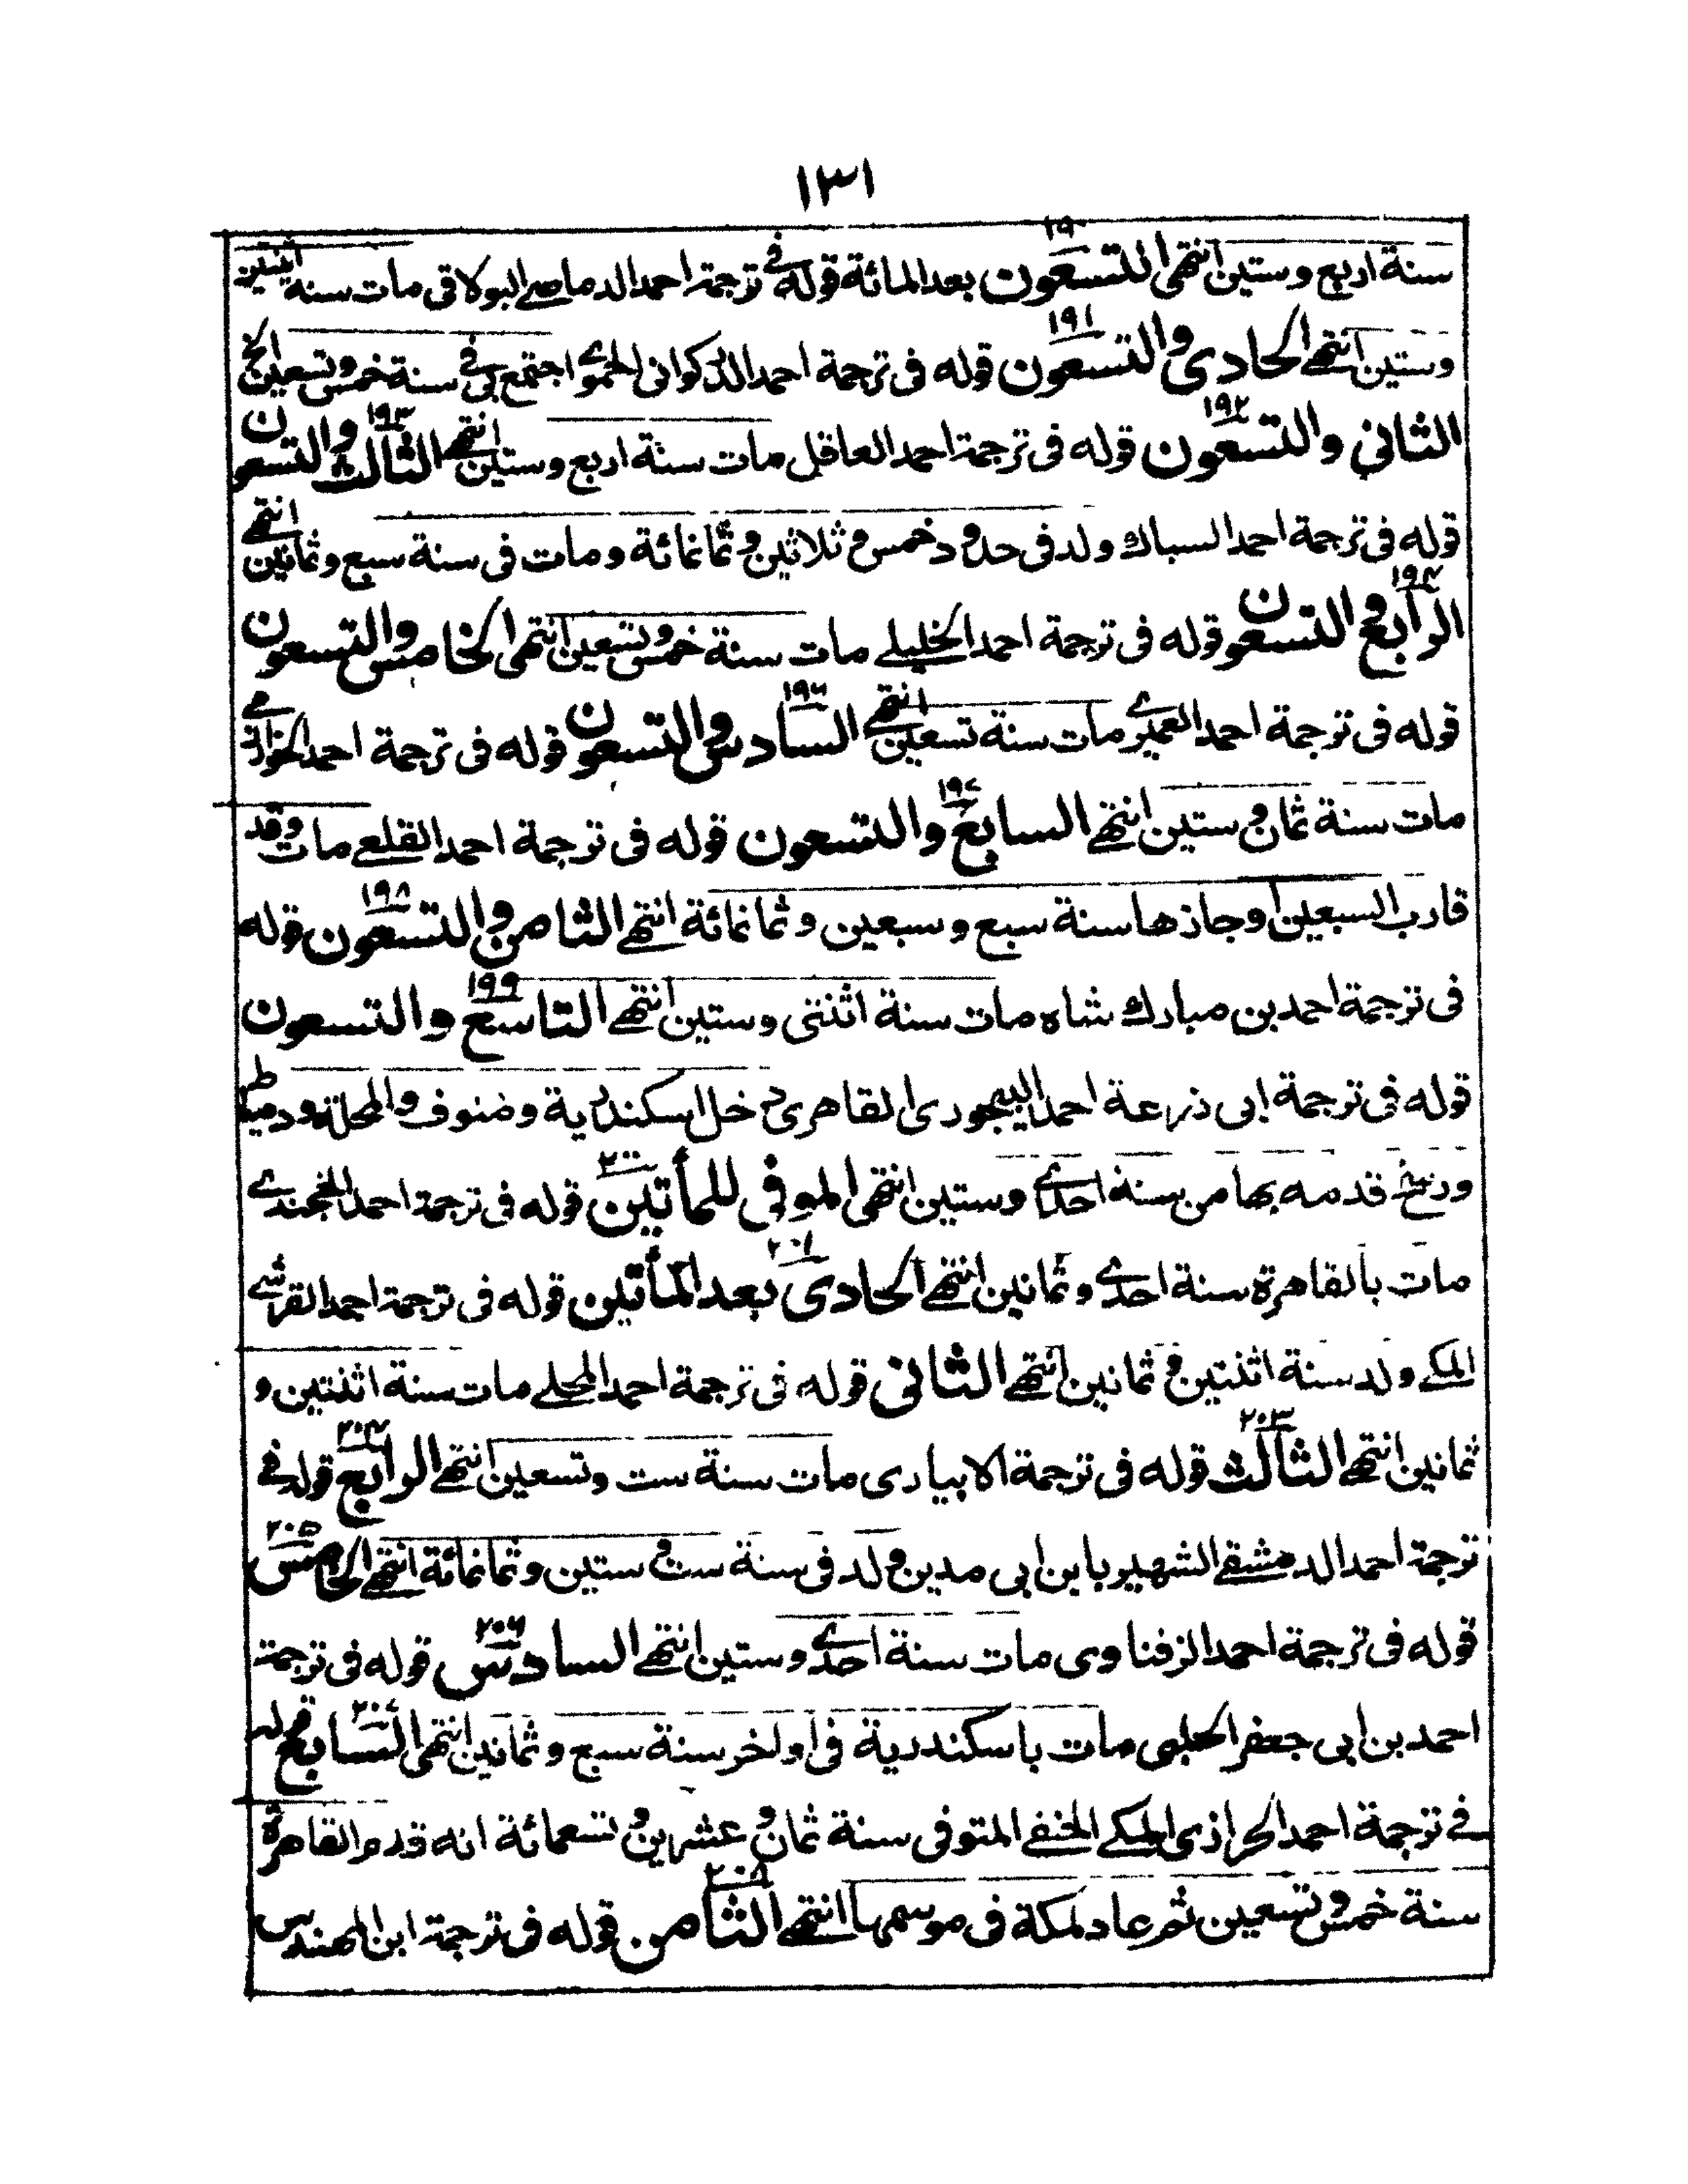 ١٣١
سنة اربع وستين انتهى التسعون بعد المائة قوله في ترجمة احمد الدماصي البولاقي مات سنة اثنتين
١٩٠
وستين انتهى الحادي والتسعون قوله في ترجمة احمد الذكواني الحموي اجتمع بي في سنة خمس وتسعين الخ
١٩١
الثاني والتسعون قوله في ترجمة احمد العاقل مات سنة اربع وستين انتهى الثالث والتسعون
١٩٢ ١٩٣
قوله في ترجمة احمد السباك ولد في حدود خمس وثلاثين وثمانمائة ومات في سنة سبع وثمانين انتهى
الرابع والتسعون قوله في ترجمة احمد الخليلي مات سنة خمس وتسعين انتهى الخامس والتسعون
١٩٤
قوله في ترجمة احمد العميري مات سنة تسعين انتهى السادس والتسعون قوله في ترجمة احمد
١٩٦
مات سنة ثمان وستين انتهى السابع والتسعون قوله في ترجمة احمد القلعي مات وقد
١٩٧
قارب السبعين او جازها سنة سبع وسبعين وثمانمائة انتهى الثامن والتسعون قوله
١٩٨
في ترجمة احمد بن مبارك شاه مات سنة اثنتي وستين انتهى التاسع والتسعون
١٩٩
قوله في ترجمة ابي ذرعة احمد البيجوري القاهري دخل اسكندرية ومنوف والمحلة ودمياط
قدمه بها من سنة احدى وستين انتهى الموفي للمأتين قوله في ترجمة احمد الخجندي
٢٠٠
مات بالقاهرة سنة احدى وثمانين انتهى الحادي بعد المأتين قوله في ترجمة احمد القرشي
٢٠١
المكي ولد سنة اثنتين وثمانين انتهى الثاني قوله في ترجمة احمد المحلي مات سنة اثنتين و
ثمانين انتهى الثالث قوله في ترجمة الابياري مات سنة ست وتسعين انتهى الرابع قوله في
٢٠٣ ٢٠٤
ترجمة احمد الدمشقي الشهير بابن ابي مدين ولد في سنة ست وستين وثمانمائة انتهى الخامس
٢٠٥
قوله في ترجمة احمد الزفتاوي مات سنة احدى وستين انتهى السادس قوله في ترجمة
٢٠٦
احمد بن ابي جعفر الحلبي مات باسكندرية في اواخر سنة سبع وثمانين انتهى السابع قوله
٢٠٧
في ترجمة احمد الحرازي المكي الحنفي المتوفى سنة ثمان وعشرين وتسعمائة انه قدم القاهرة
سنة خمس وتسعين ثم عاد لمكة في موسمها انتهى الثامن قوله في ترجمة ابن المهندس
٢٠٨